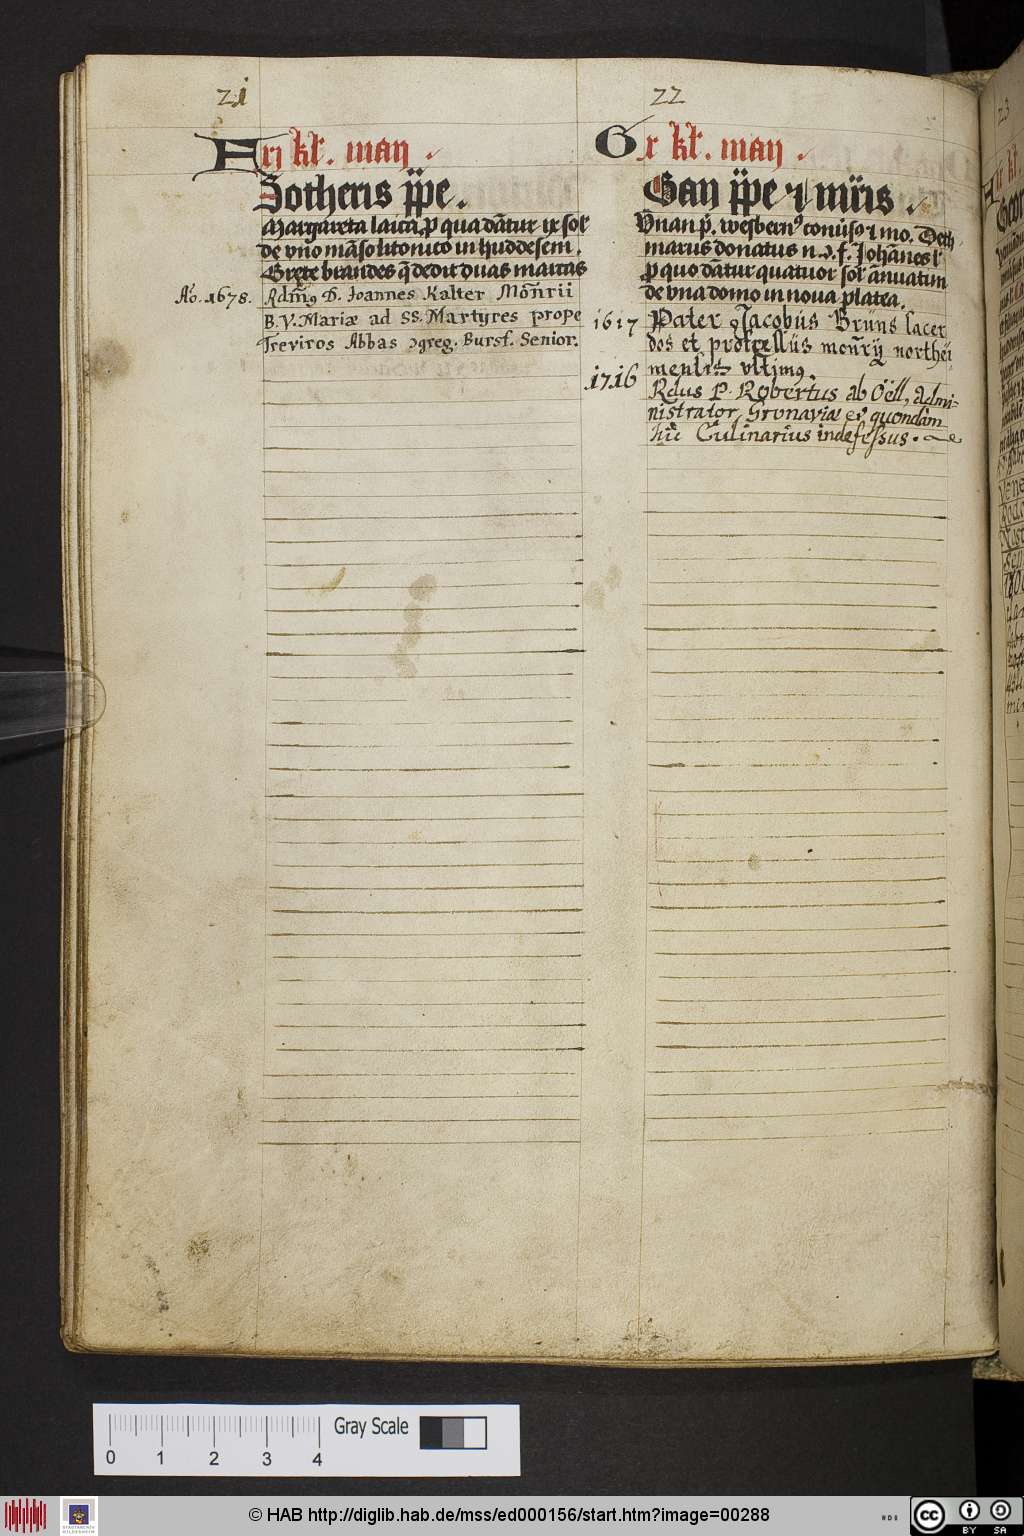 21
F xj kł. maij
Sotheris ppe.
Margareta laica, p qua dãtur ix sol
de vño mãso litonico in huddesem.
Grete brandes q̃ dedit duas marcas
Aō. 1678. Rdm9 D. Joannes Kalter Moñrii
B.V. Mariæ ad SS. Martyres prope
Treviros Abbas ɔgreg. Bursf. Senior.
22
G x kł. maij
Gaij ppe ⁊ mr̃is
Vnan p̃. wesbern9 conũs9 ⁊ mo. Deth
marus donatus n. Johãnes
p quo dãtur quatuor sol ãnuatim
de vna domo in noua platea.
1617 Pater Jacobus Brũns sacer
dos et professus moñrij northei
mensis vltim9.
1716 Rdus P. Robertus ab Oëll, admi-
nistrator Gronaviæ et quondam
hic Culinarius indefessus.
23
Gray Scale
0 1 2 3 4
© HAB http://diglib.hab.de/mss/ed000156/start.htm?image=00288
STADTARCHIV HILDESHEIM
CC BY SA